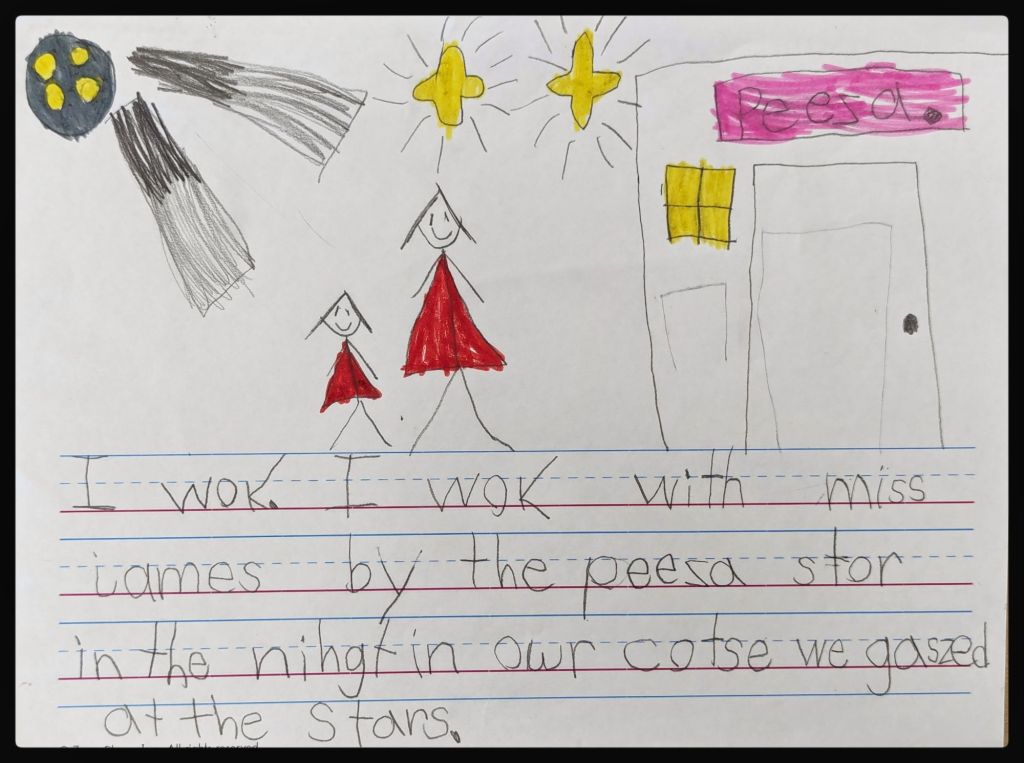 Peesa.
I wok. I wok with miss
iames by the peesa stor
in the nihgt in owr cotse we gaszed
at the stars.